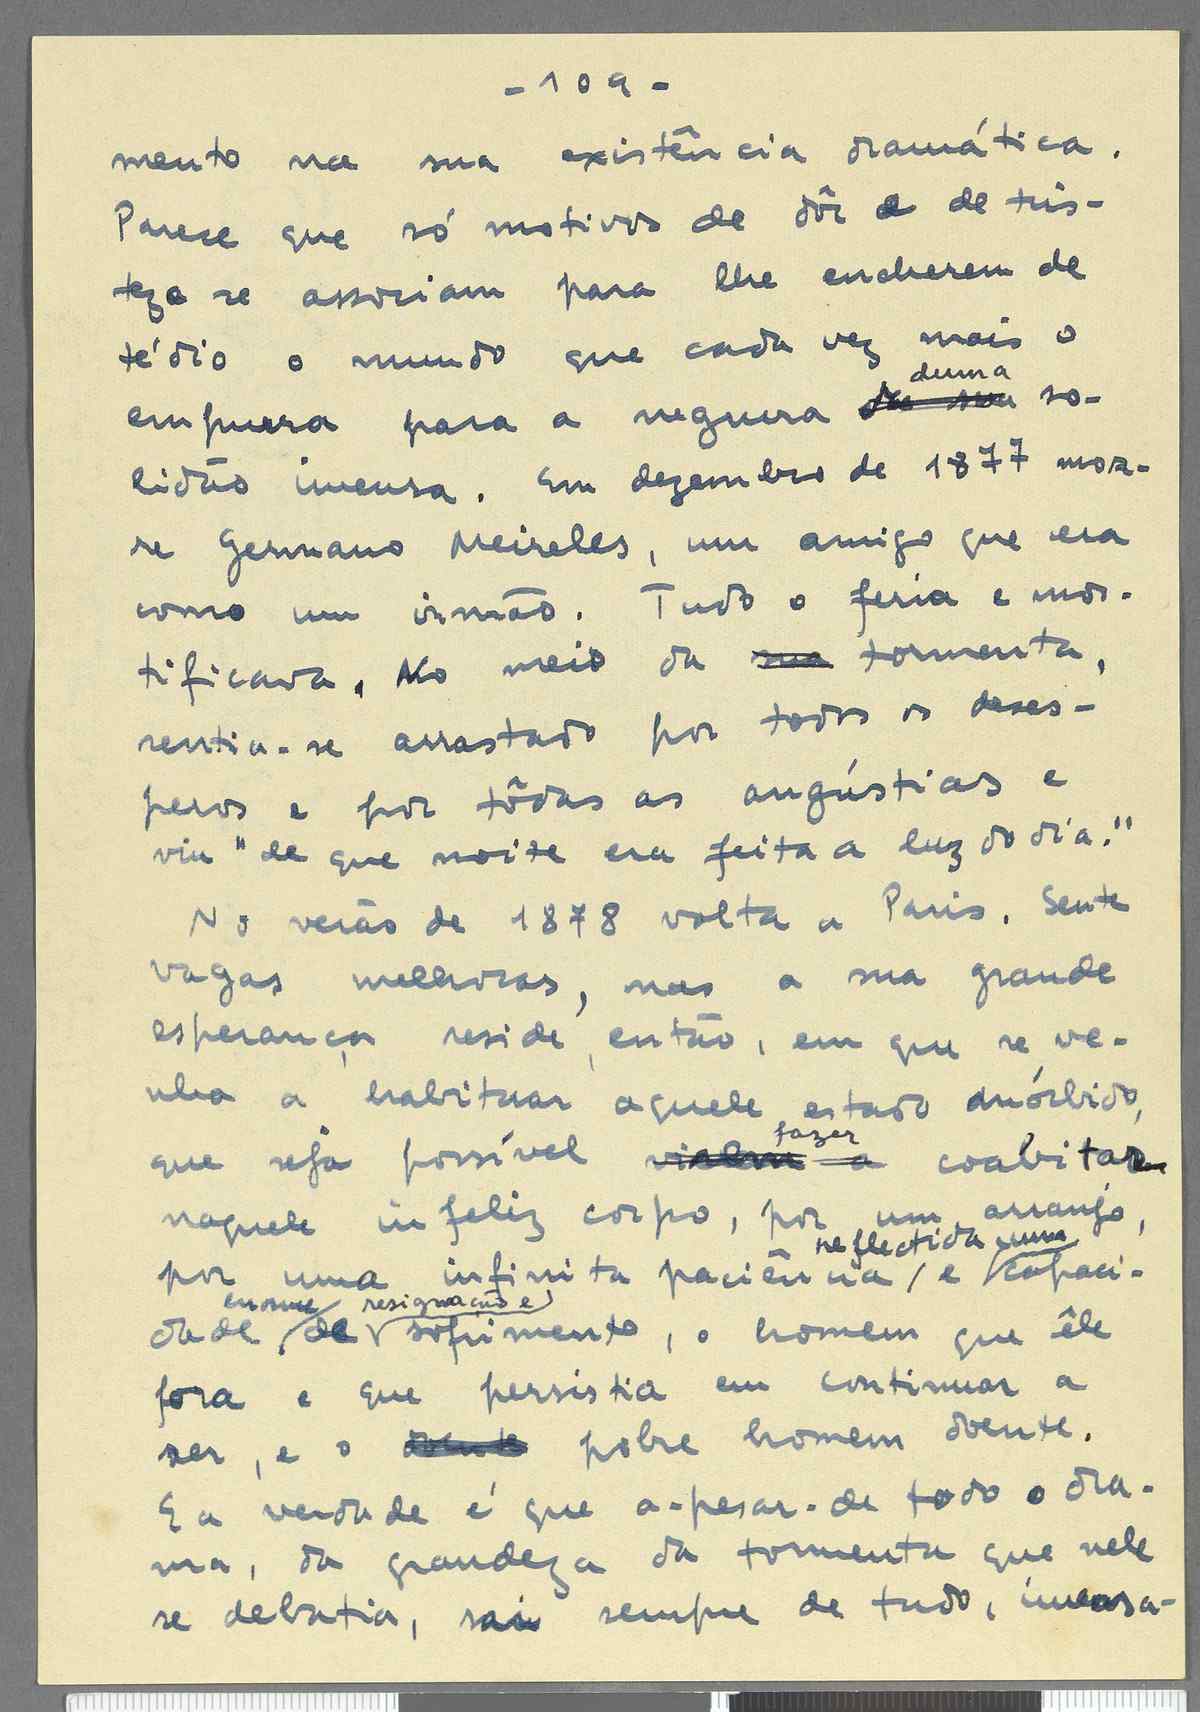 - 109 -
mento na sua existência dramática.
Parece que só motivos de dôr e de tris-
teza se associam para lhe encherem de
tédio o mundo que cada vez mais o
duma
empurra para a negrura da sua so-
lidão imensa. Em dezembro de 1877 mor-
re Germano Meireles, um amigo que era
como um irmão. Tudo o feria e mor-
tificava. No meio da sua tormenta,
sentia-se arrastado por todos os deses-
peros e por tôdas as angústias e
viu "de que noite era feita a luz do dia."
No verão de 1878 volta a Paris. Sente
vagas melhoras, mas a sua grande
esperança reside, então, em que se ve-
nha a habituar aquele estado mórbido,
fazer
que seja possível a coabitar
naquele infeliz corpo, por um arranjo,
reflectida uma
por uma infinita paciência / e capaci-
enorme resignação e
dade de sofrimento, o homem que êle
fora e que persistia em continuar a
ser, e o doente pobre homem doente.
E a verdade é que a-pesar-de todo o dra-
ma, da grandeza da tormenta que nele
se debatia, sai sempre de tudo, imensa-